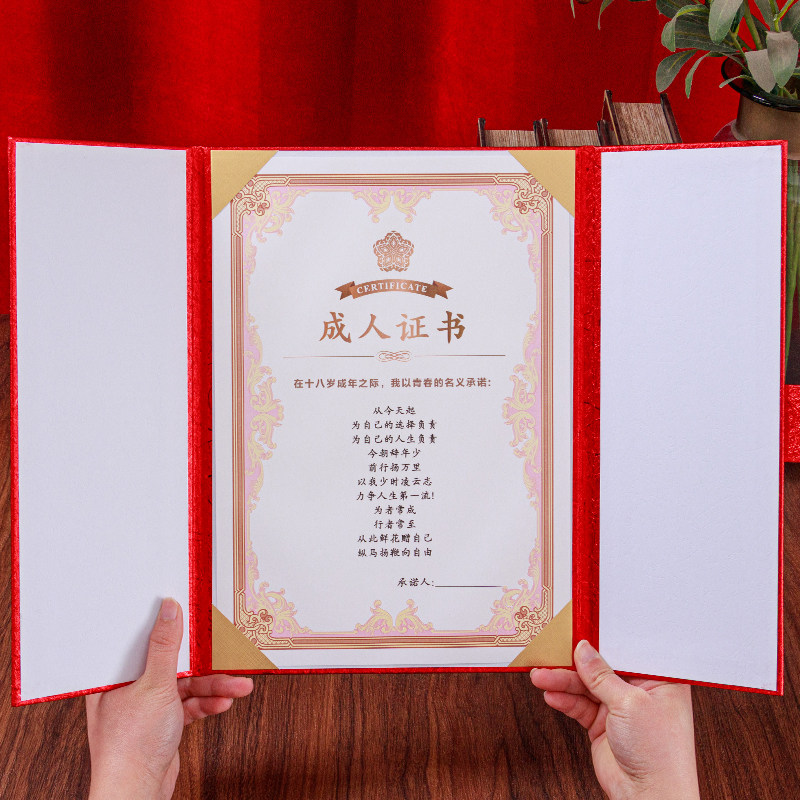 CERTIFICATE
成人证书
在十八岁成年之际，我以青春的名义承诺：
从今天起
为自己的选择负责
为自己的人生负责
今朝辞年少
前行扬万里
以我少时凌云志
力争人生第一流！
为者常成
行者常至
从此鲜花赠自己
纵马扬鞭向自由
承诺人：